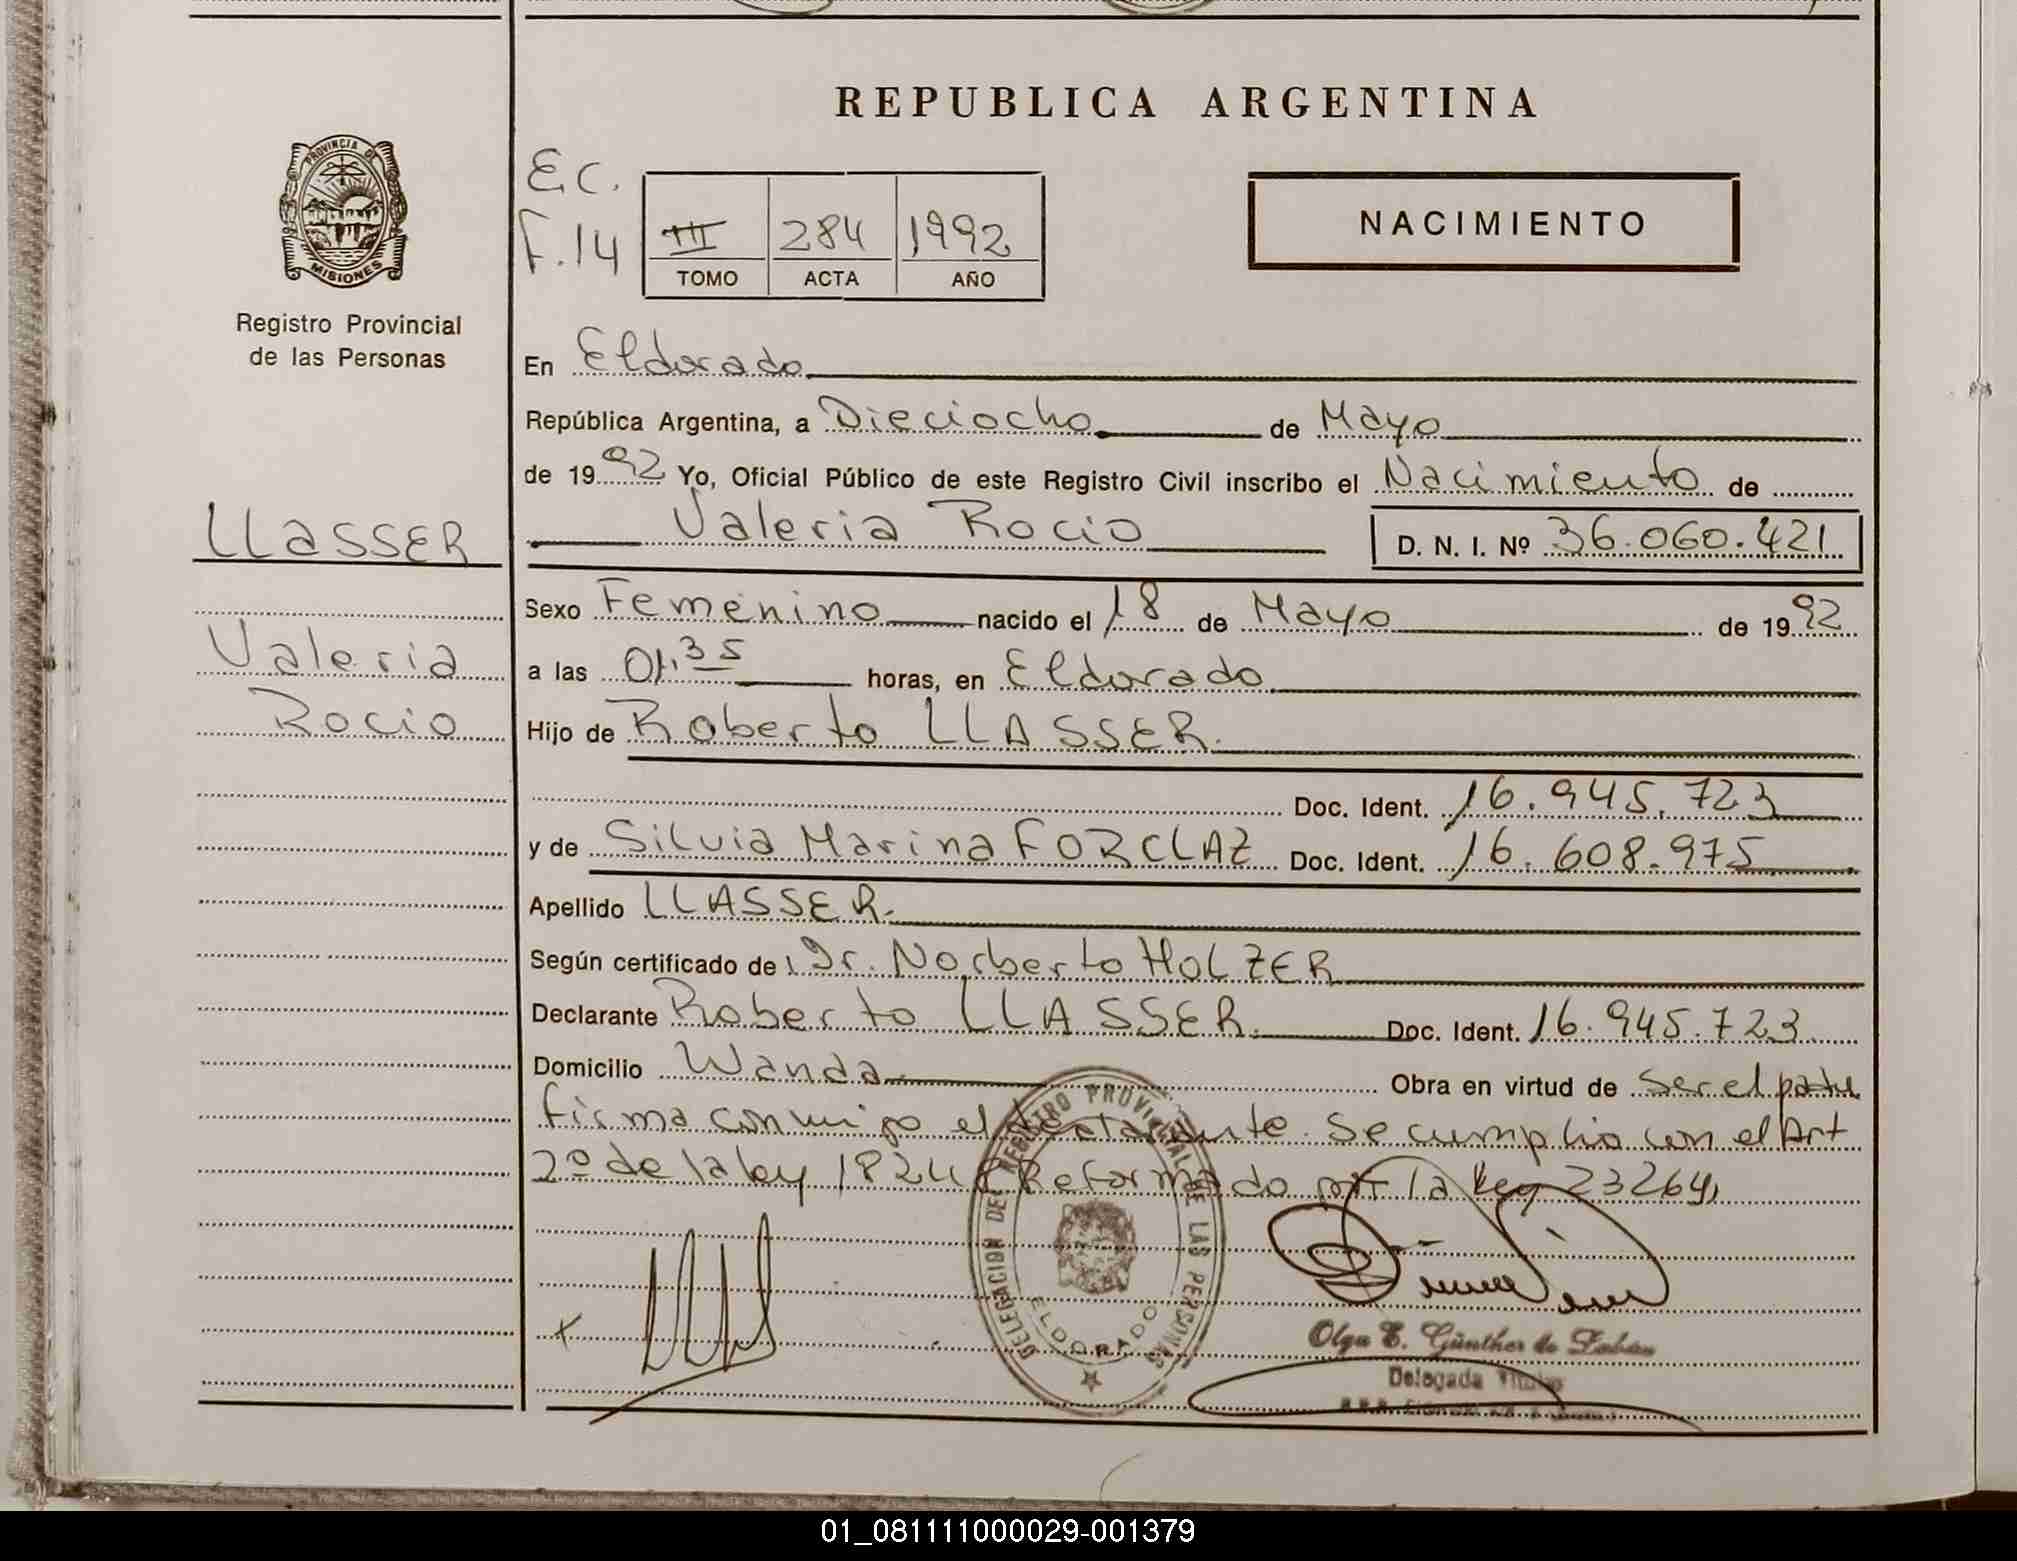 REPUBLICA ARGENTINA
PROVINCIA DE
MISIONES
Registro Provincial
de las Personas
E.C.
F.14
III 284 1992
TOMO ACTA AÑO
NACIMIENTO
En Eldorado
República Argentina, a Dieciocho de Mayo
de 1992 Yo, Oficial Público de este Registro Civil inscribo el Nacimiento de
Valeria Rocio D. N. I. Nº 36.060.421
LLASSER
Valeria
Rocio
Sexo Femenino nacido el 18 de Mayo de 1992
a las 01,35 horas, en Eldorado
Hijo de Roberto LLASSER.
Doc. Ident. 16.945.723
y de Silvia Marina FORCLAZ Doc. Ident. 16.608.975
Apellido LLASSER.
Según certificado de Dr. Norberto HOLZER
Declarante Roberto LLASSER. Doc. Ident. 16.945.723
Domicilio Wanda Obra en virtud de ser el padre
firma conmigo el declarante. Se cumplio con el Art
2º de la ley 18248 Reformado por la ley 23264,
DELEGACION DEL REGISTRO PROVINCIAL DE LAS PERSONAS
ELDORADO
Olga E. Günther de
Delegada Titular
01_081111000029-001379